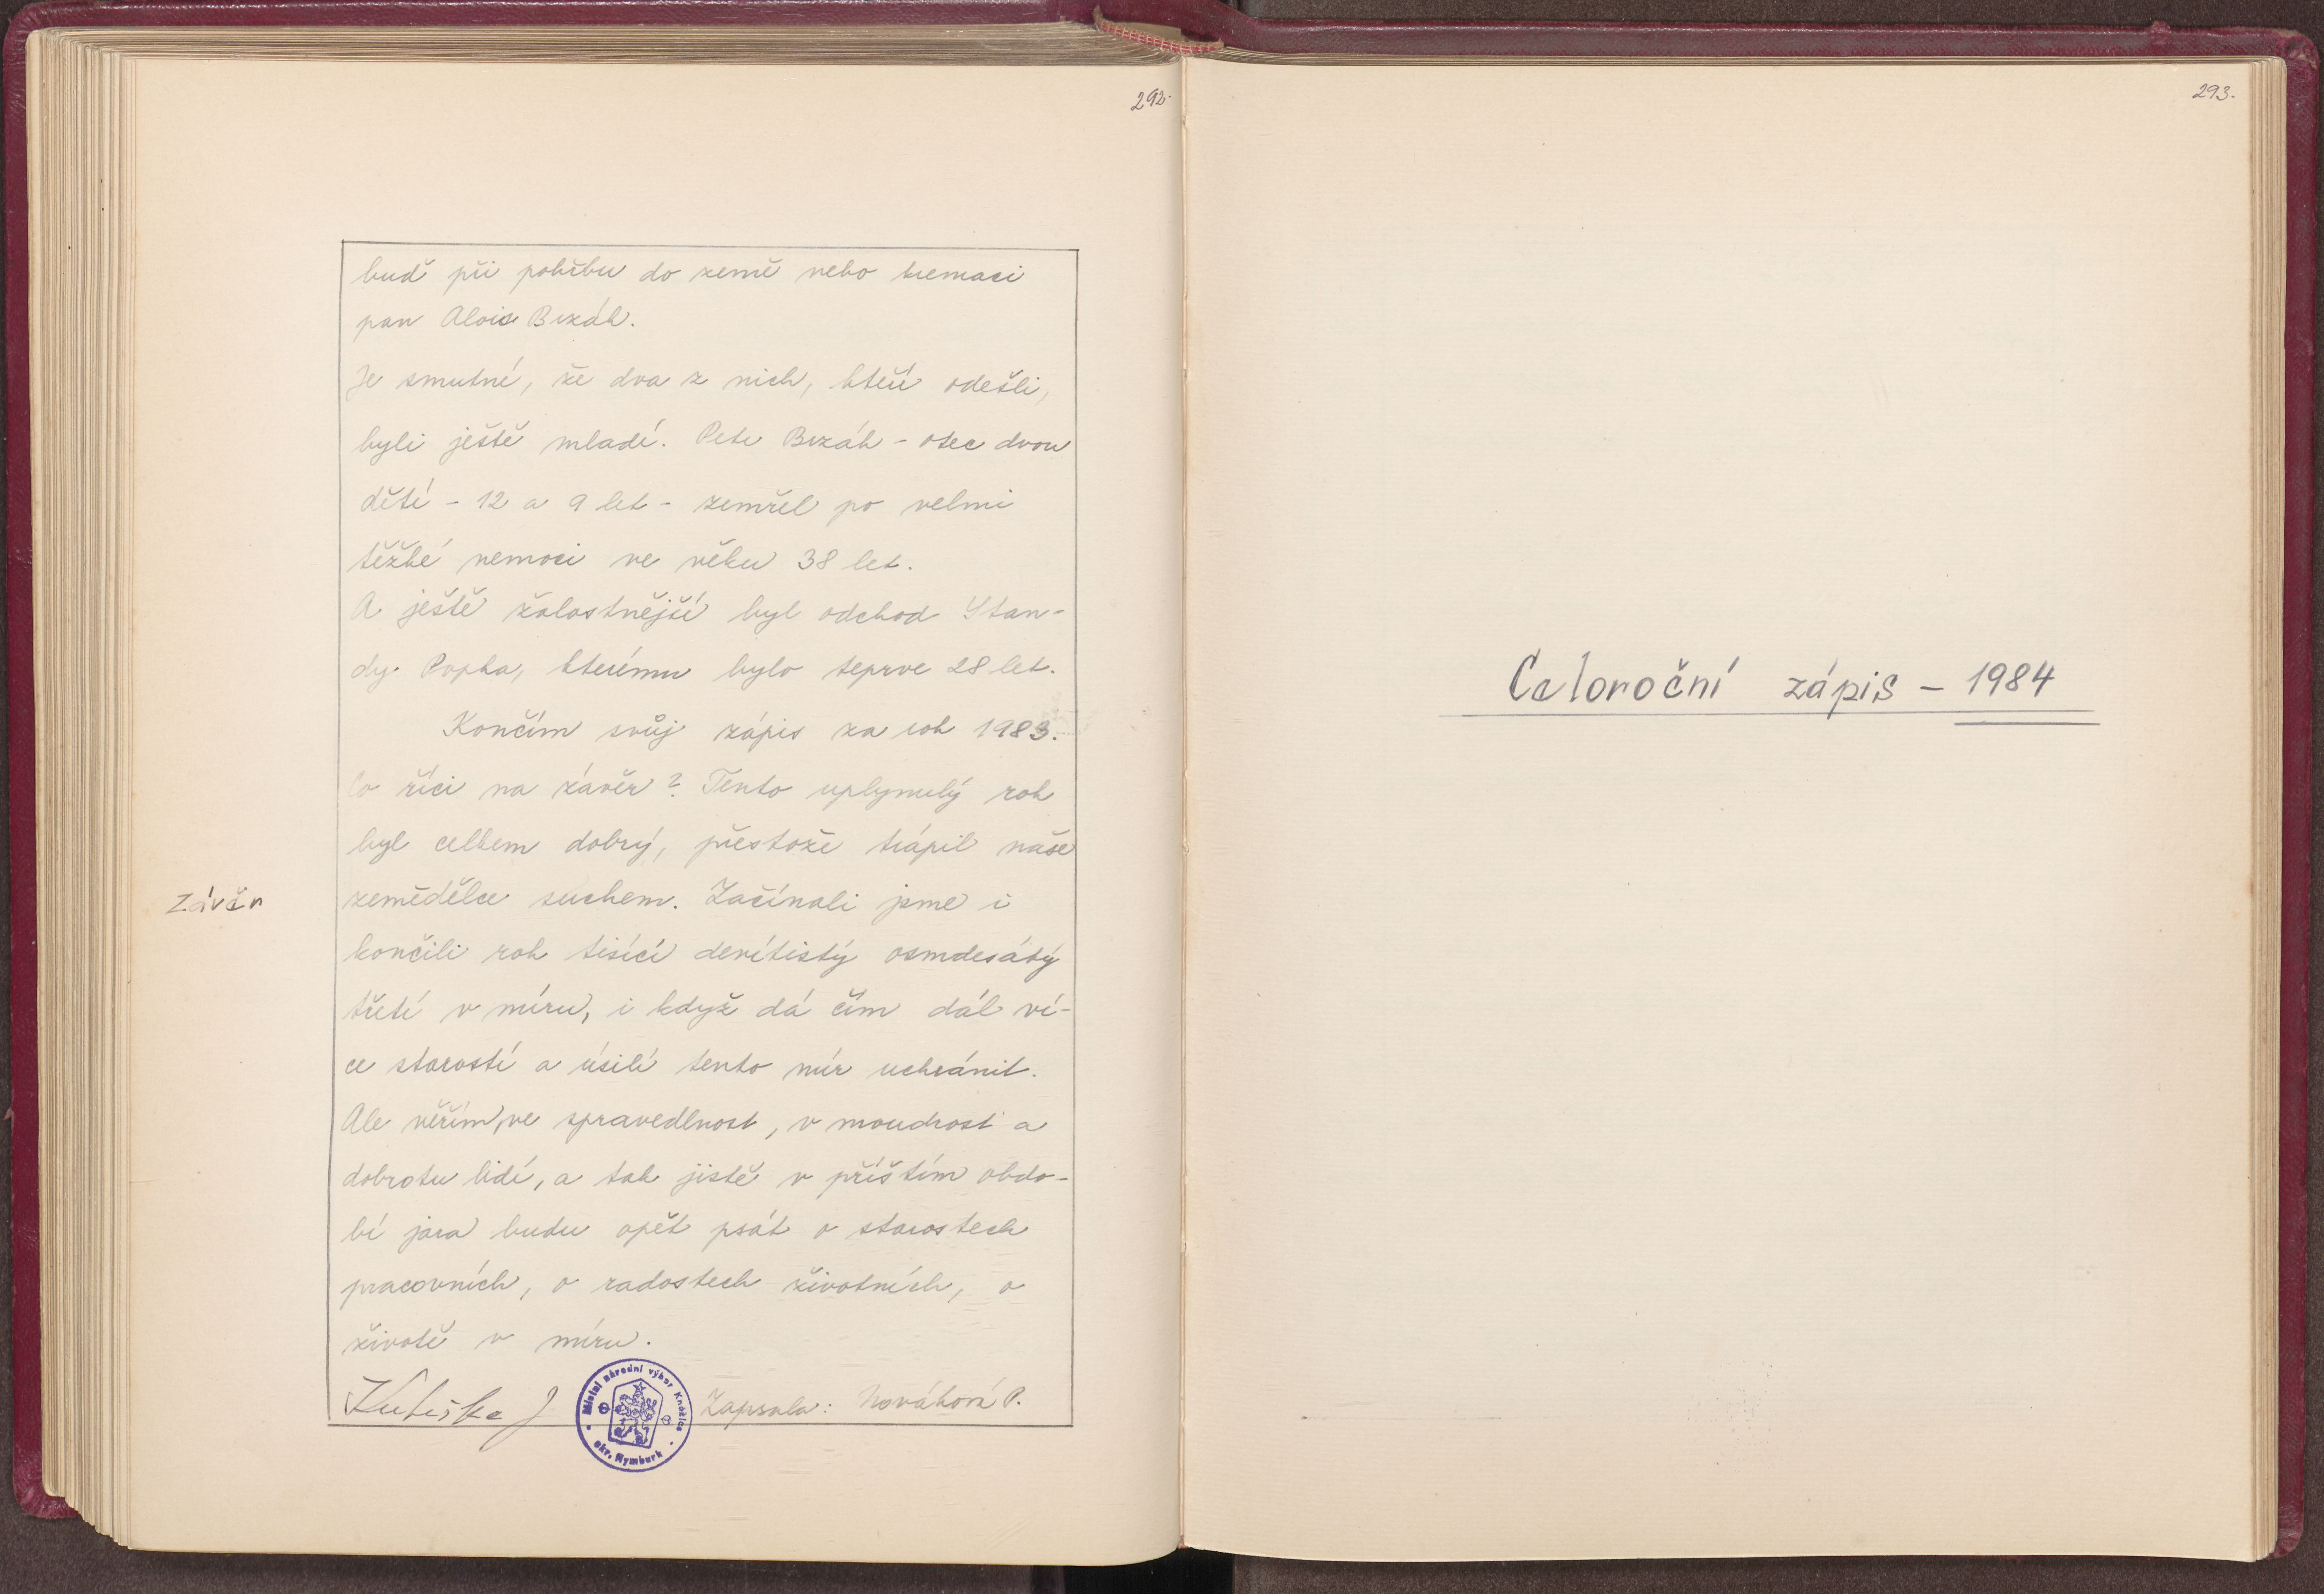 292.
buď při pohřbu do země nebo kremaci
pan Alois Brzák.
Je smutné, že dva z nich, kteří odešli,
byli ještě mladí. Petr Brzák - otec dvou
dětí - 12 a 9 let - zemřel po velmi
těžké nemoci ve věku 38 let.
A ještě žalostnější byl odchod Stan-
dy Popka, kterému bylo teprve 28 let.
Končím svůj zápis za rok 1983.
Co říci na závěr? Tento uplynulý rok
byl celkem dobrý, přestože trápil naše
Závěr
zemědělce suchem. Začínali jsme i
končili rok tisící devítistý osmdesátý
třetí v míru, i když dá čím dál ví-
ce starostí a úsilí tento mír uchránit.
Ale věřím, ve spravedlnost, v moudrost a
dobrotu lidí, a tak jistě v příštím obdo-
bí jara budu opět psát o starostech
pracovních, o radostech životních, o
životě v míru.
J Zapsala: Nováková P.
Místní národní výbor
okr. Nymburk
293.
Celoroční zápis - 1984